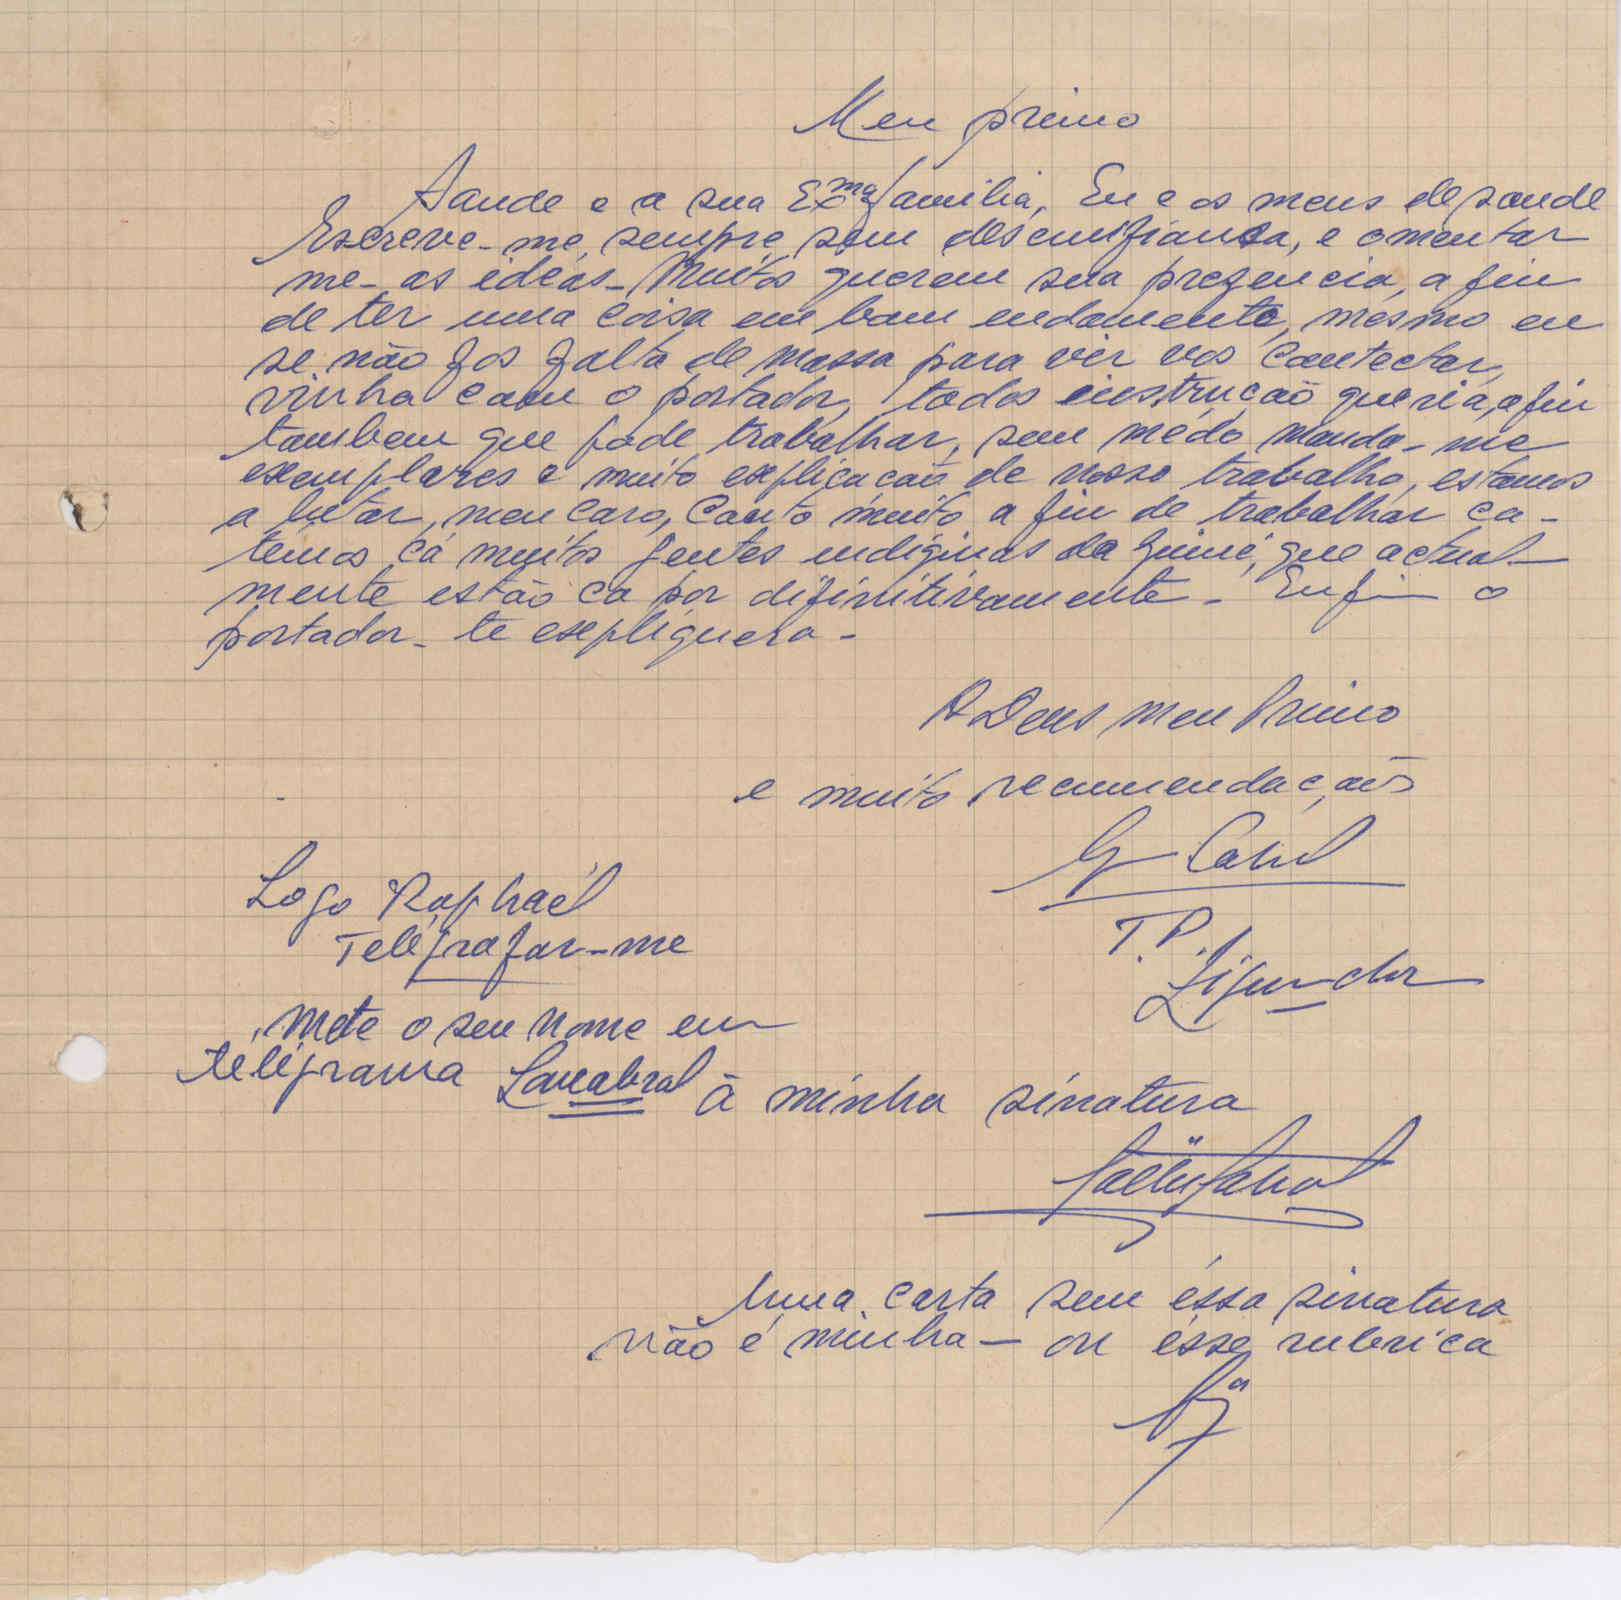 Meu primo
Saude e a sua Exma familia, Eu e os meus de saude
Escreve-me, sempre sem desconfiança, e omentar
me-as ideás-Muitos querem sua prezencia, a fim
de ter uma coisa em bom endamento, mesmo eu
se não fos falta de massa para vir vos Contectar,
vinha com o portador, todos instrução queria, a fim
tambem que pode trabalhar, sem médo manda-me
exemplares e muito expliçacaõ de nosso trabalho, estamos
a lutar, meu caro, Canto muito a fim de trabalhar ca-
temos cá muitos gentes indiginas da guiné, que actual-
mente estão ca por difinitivamente- Enfim o
portador-te esepliquera-
ADeus meu Primo
e muito recumendaçaõs
G Cabral
T.P.
Logo Raphaél
Telégrafar-me
Ziguinchor
Mete o seu nome em
téligrama Lacabral
à minha sinatura
Uma carta sem éssa sinatura
não é minha- ou ésse rubrica